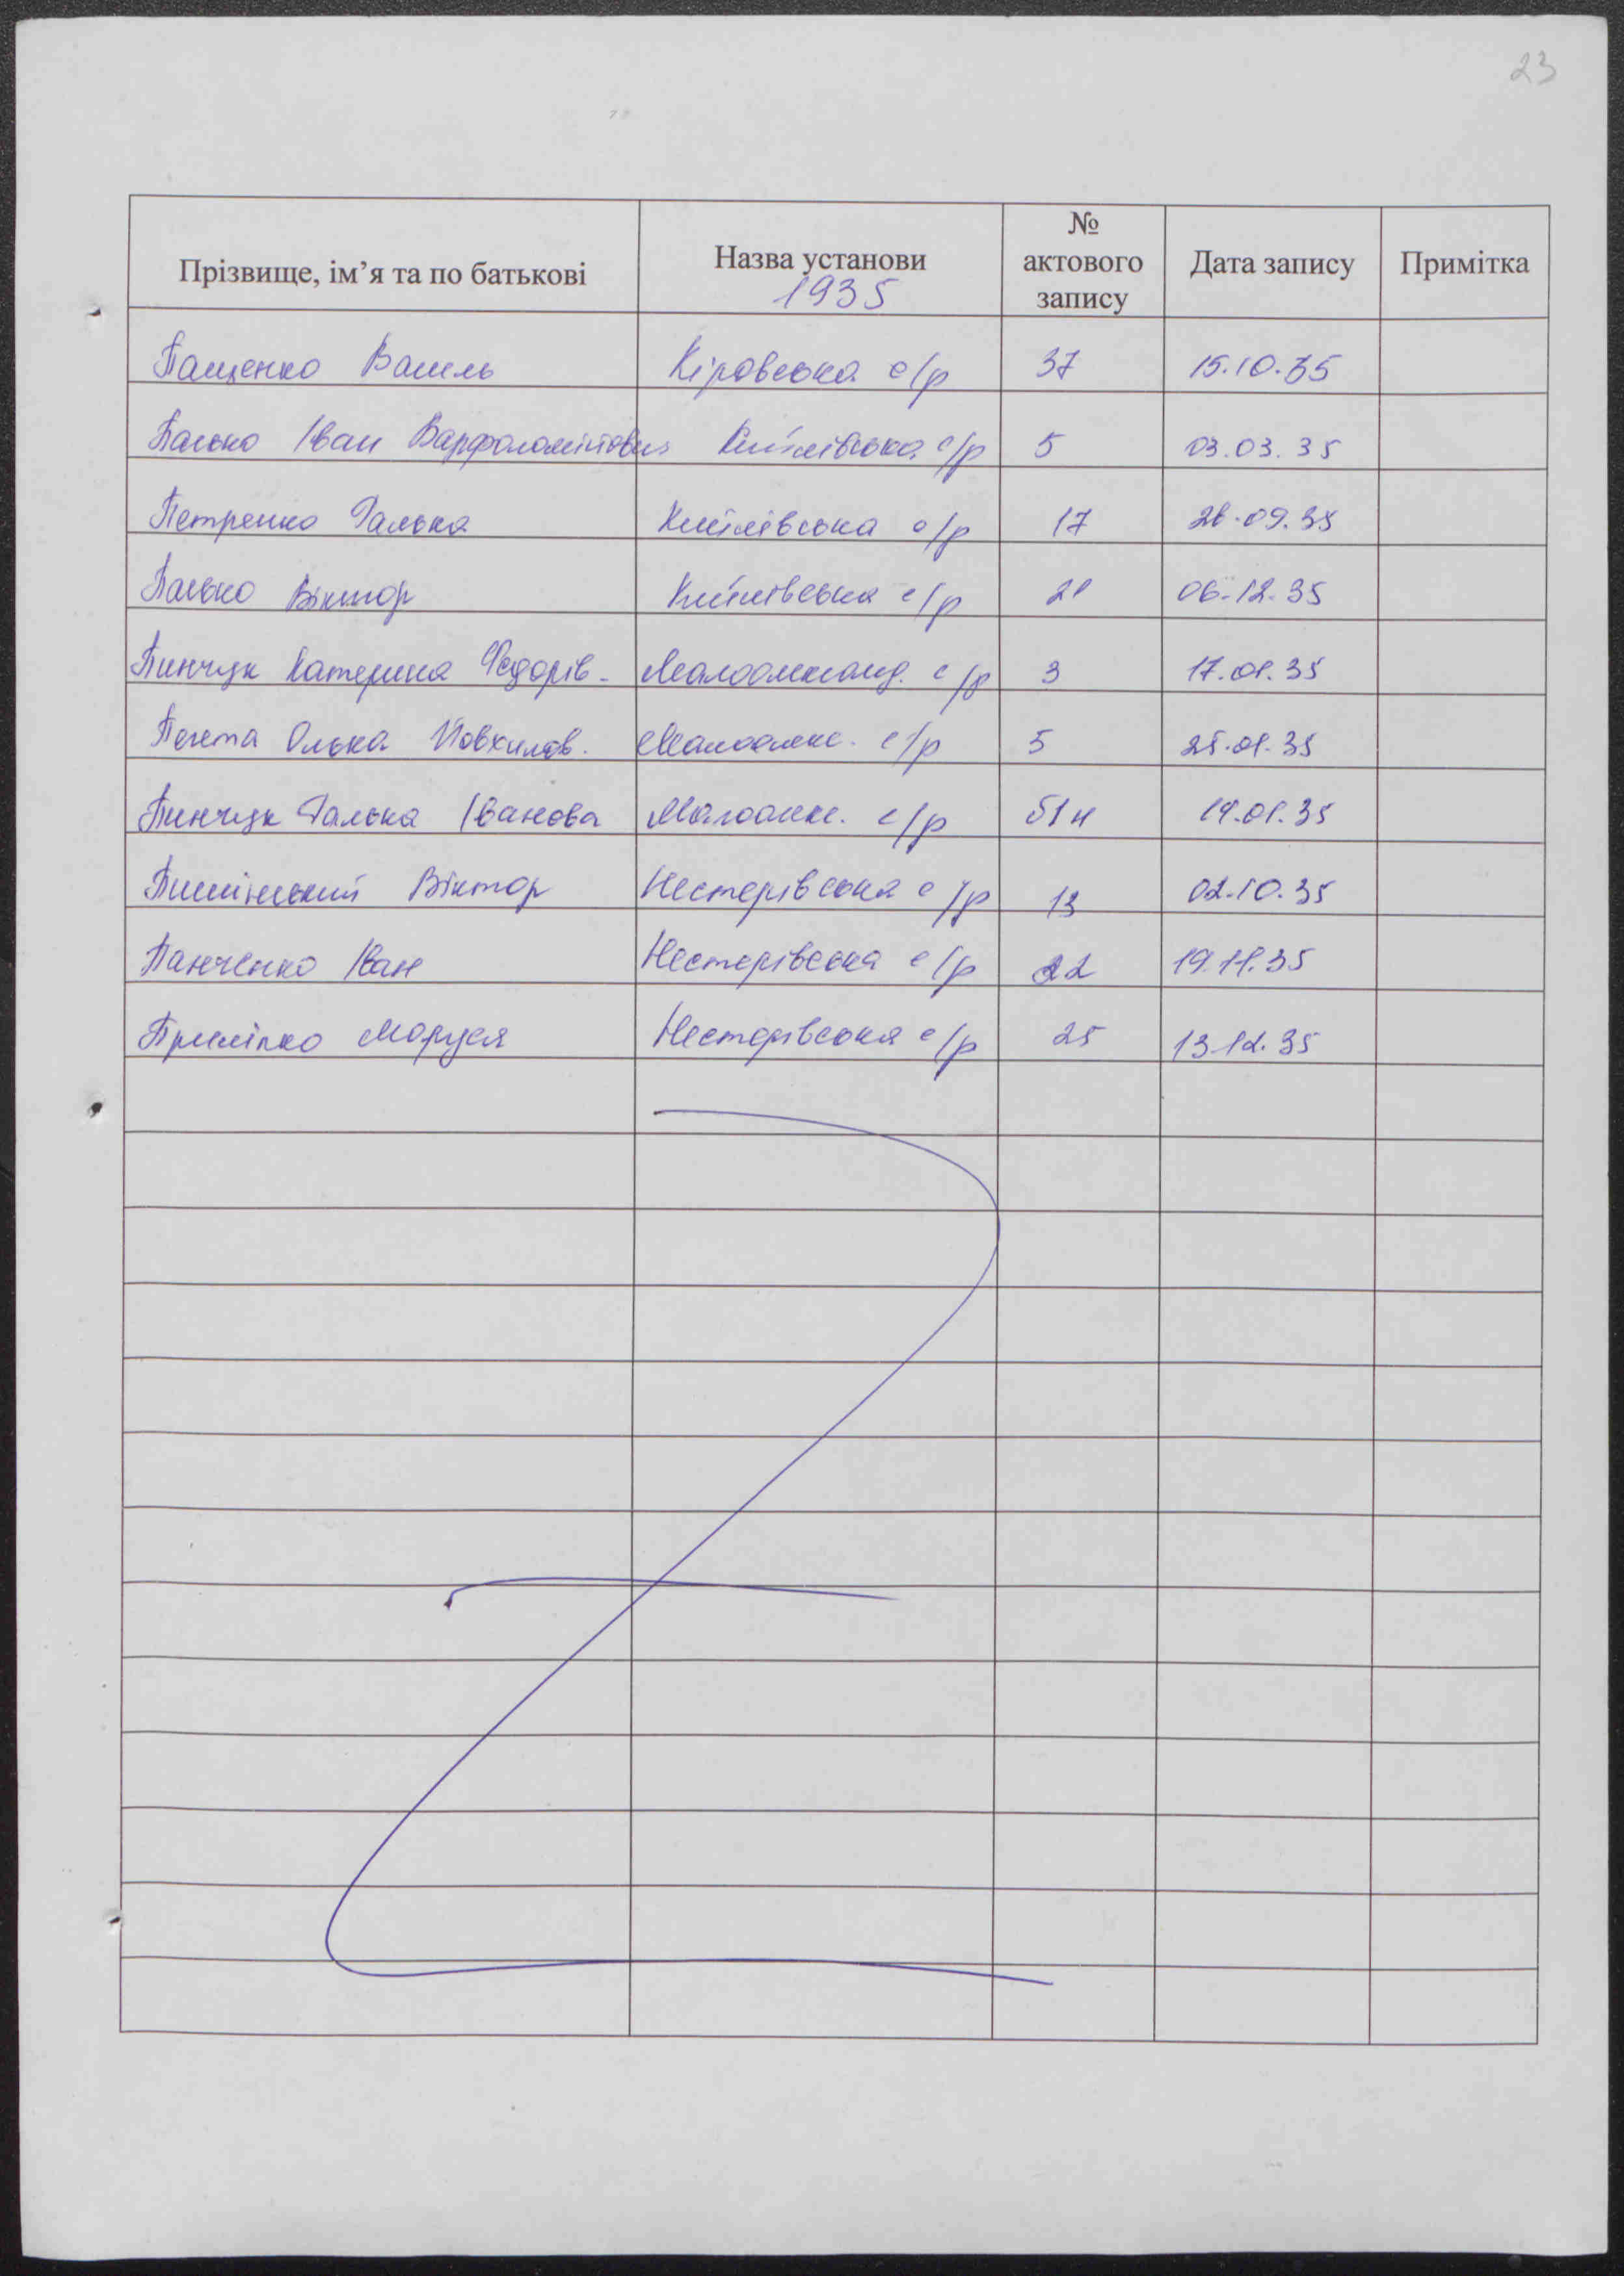 23
Прізвище, ім’я та по батькові Назва установи 1935 № актового запису Дата запису Примітка
Пащенко Василь Кіровська с/р 37 15.10.35
Пасько Іван Варфоломійович с/р 5 03.03.35
Петренко Галька с/р 17 26.09.35
Пасько Віктор с/р 21 06.12.35
Пинчук Катерина Федорів. Малоолександ. с/р 3 17.01.35
Олька Малоолекс. с/р 5 25.01.35
Пинчук Галька Іванова Малоолекс. с/р 19.01.35
Віктор Нестерівська с/р 13 02.10.35
Панченко Іван Нестерівська с/р 22 19.11.35
Маруся Нестерівська с/р 25 13.12.35